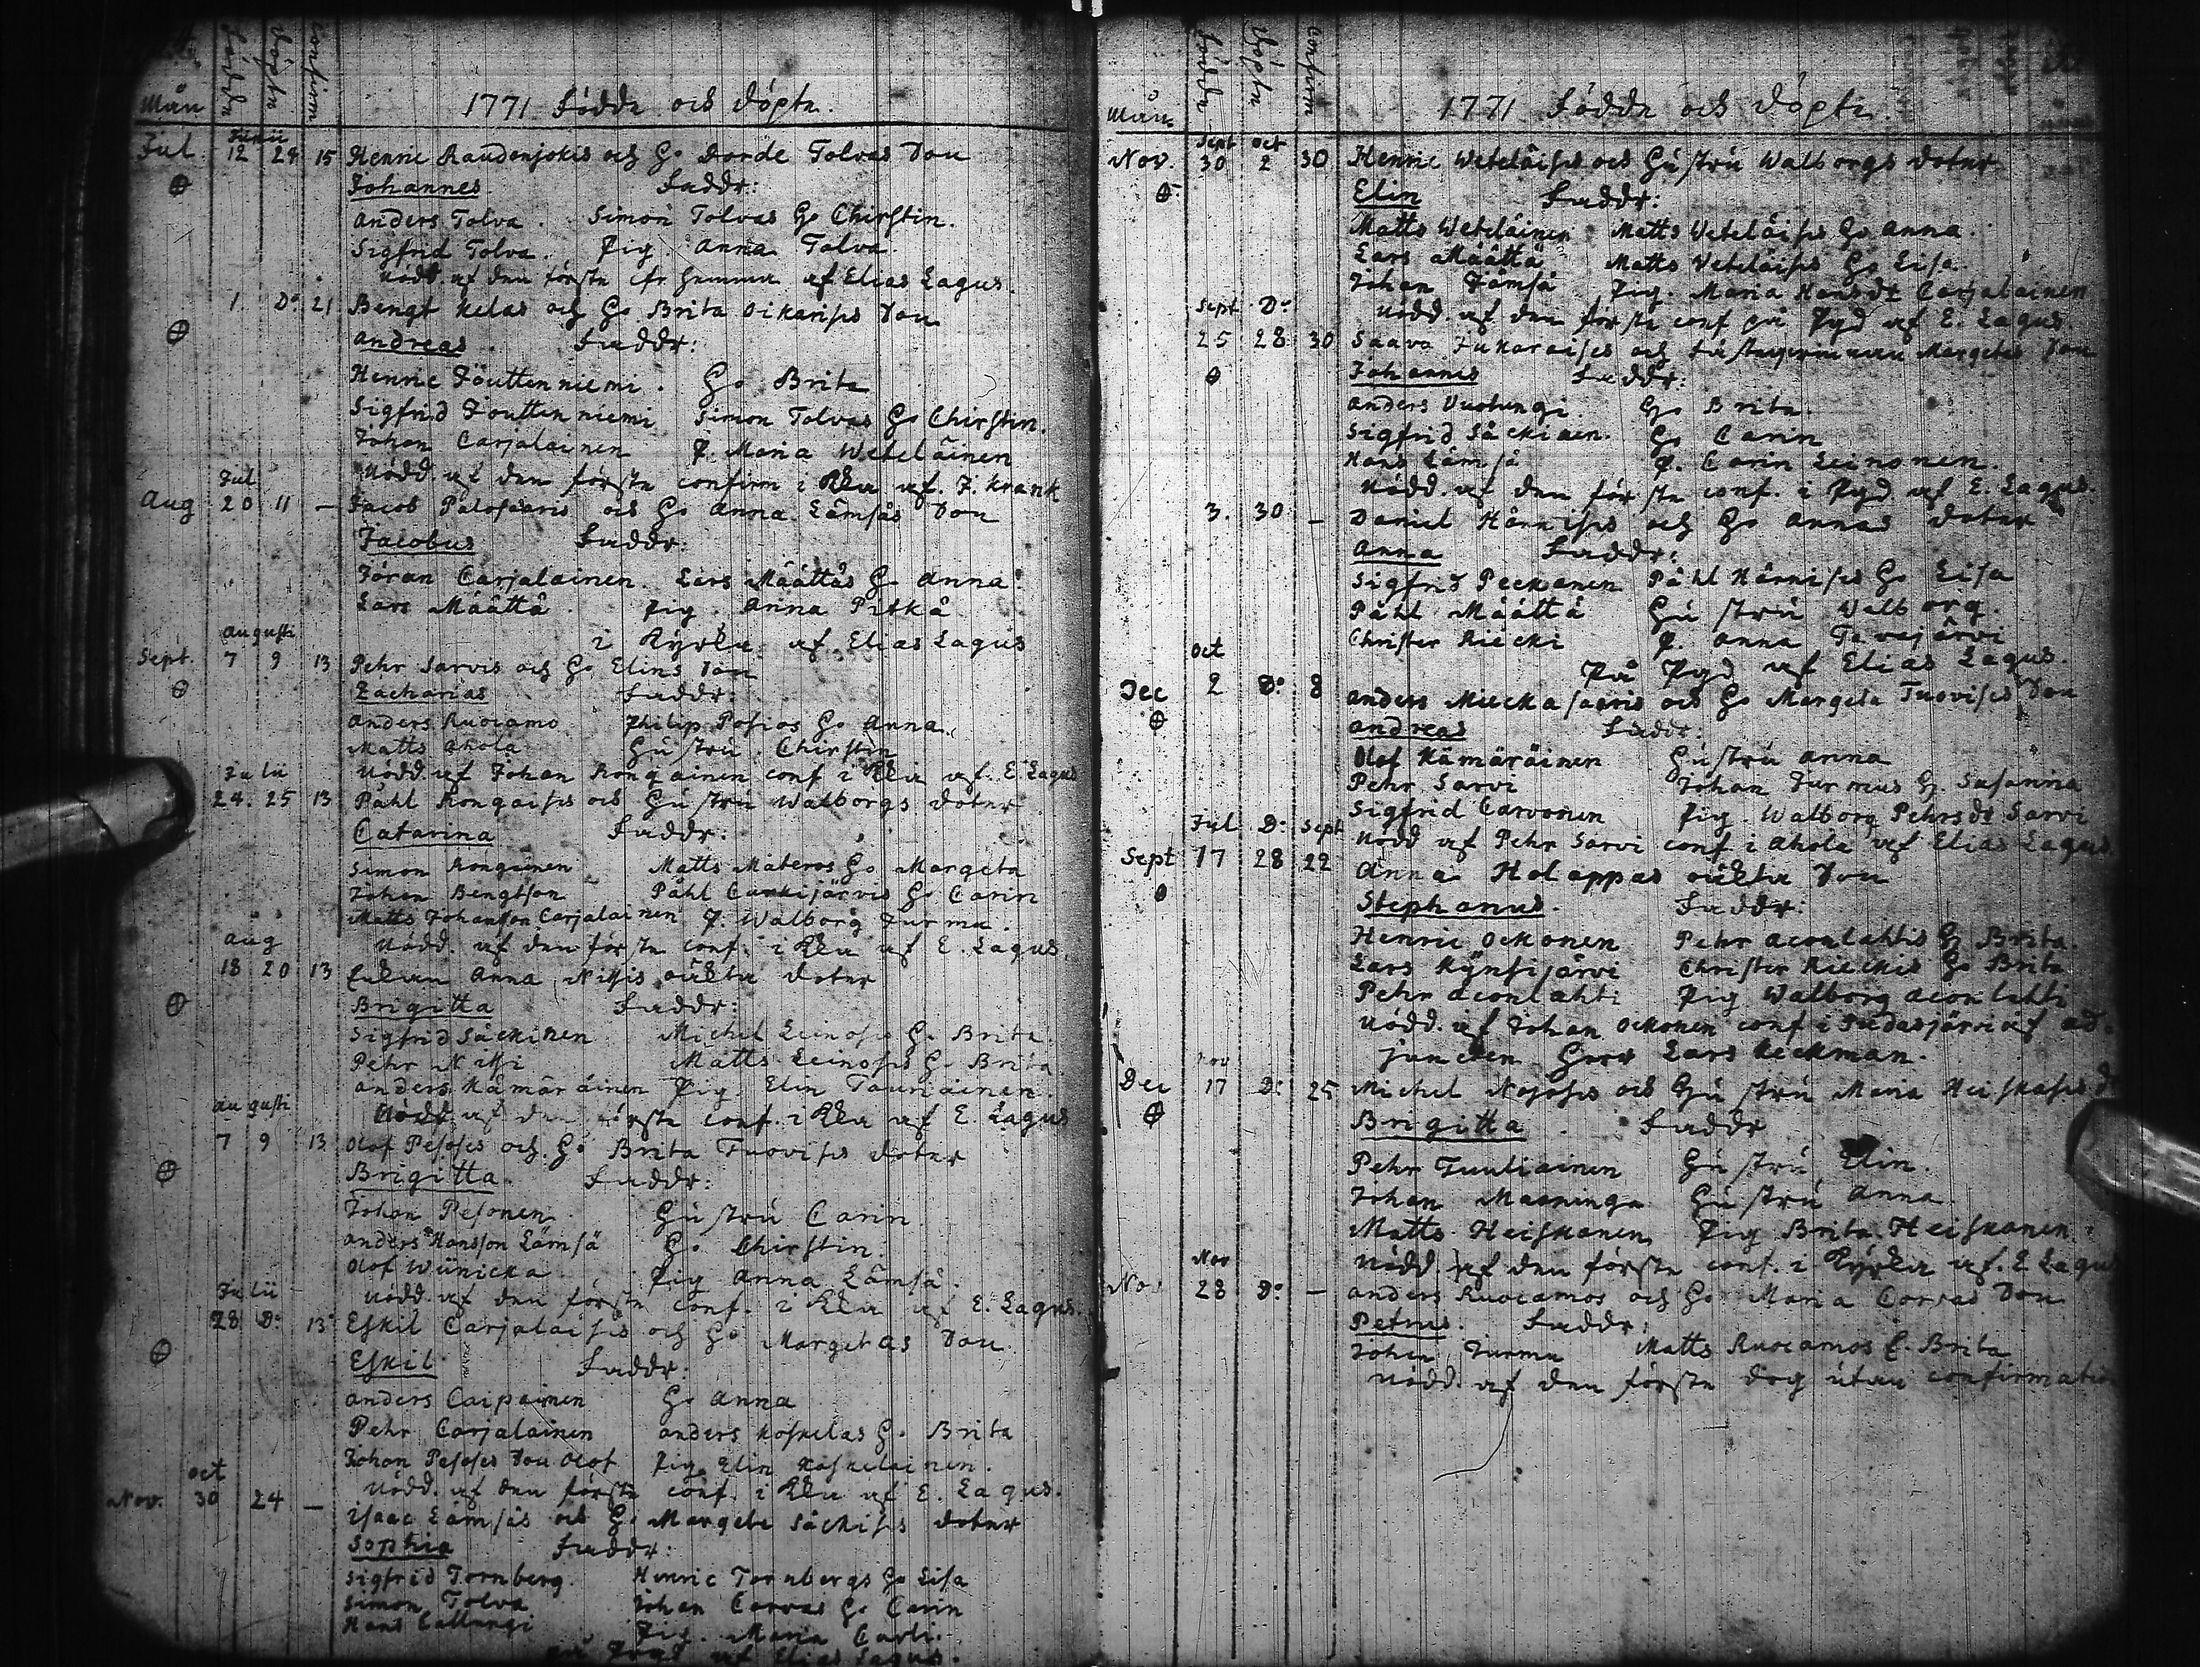 Födde Döpte Confirm
Mån 1771 Födde och Döpte.
Junii
Jul. 12 28 15 Henric Raudenjokis och H. Dorde Tolvas Son
Johannes. Faddr:
Anders Tolva. Simon Tolvas H. Chirstin.
Sigfrid Tolva. Pig. Anna Tolva.
Nödd. af den förste af Elias Lagus.
1. D:o 21 Bengt Kelas och H. Brita Oikarises Son
Andreas. Faddr:
Henric Jouttenniemi. H. Brita
Sigfrid Jouttenniemi Simon Tolvas H. Chirstin.
Johan Carjalainen P. Maria Weteläinen
Nödd. af den förste confirm i Kka af. J. Krank
Jul
Aug 20 11 – Jacob Palosaaris och H. Anna Lämsäs Son
Jacobus Faddr:
Jöran Carjalainen. Lars Määttäs H. Anna.
Lars Määttä. Pig. Anna Pitkä
i Kyrka af Elias Lagus
Augusti
Sept. 7 9 13 Pehr Sarvis och H. Elins Son
Zacharias Faddr:
Anders Ruocamo Philip Posios H. Anna.
Matts Ahola Hustru Chirstin
Nödd. af Johan Rongainen conf i Kka af. E. Lagus
Julii
24. 25 13 Påhl Rongaises och Hustru Walborgs Doter
Catarina Faddr:
Simon Rongainen Matts Materos H. Margeta
Johan Bengtson Påhl Curkijärvis H. Carin
Matts Johansson Carjalainen P. Walborg Jurmu.
Nödd. af den förste conf. i Kka af E. Lagus.
Aug
18 20 13 Enkan Anna Nissis oäkta Doter
Brigitta Faddr:
Sigfrid Säckinen Michel Leinoses H. Brita
Pehr Nissi Matts Leinoses H. Brita
Anders Kämäräinen Pig. Elin Tauriainen.
Nödd af den förste conf. i Kka af E. Lagus
Augusti
7 9 13 Olof Pesoses och H. Brita Tuovises Doter
Brigitta. Faddr:
Johan Pesonen. Hustru Carin.
Anders Hansson Lämsä H. Chirstin.
Olof Wünicka Pig Anna Lämsä.
Nödd. af den förste conf. i Kka af E. Lagus.
Julii
28 D:o 13 Eskil Carjalaises och H. Margetas Son.
Eskil Faddr:
Anders Caipainen H. Anna
Pehr Carjalainen Anders Koskelas H. Brita
Johan Pesoses Son Olof Pig. Elin Koskelainen.
Nödd. af den förste conf. i Kka af E. Lagus.
Oct
Nov. 30 24 – Isaac Lämsäs och H. Margeta Säckises Doter
Sophia Faddr:
Sigfrid Tornberg. Henric Tornbergs H. Lisa
Simon Tolva Johan Corvas H. Carin
Hans Callungi Pig. Maria Carli.
på Pygd af Elias Lagus.
Födde Döpte Confirm
Mån. 1771 Födde och Döpte.
Sept Oct
Nov. 30 2 30 Henric Weteläises och Hustru Walborgs Doter
Elin Faddr:
Matts Weteläinen Matts Weteläises H. Anna.
Lars Määttä Matts Weteläises H. Lisa.
Johan Jämsä Pig. Maria Hansdr Carjalainen
Nödd. af den förste conf på Pygd af E. Lagus.
Sept D:o
25 28 30 Saava Jukaraises och Margetas Son
Johannes Faddr:
Anders Vuotungi. H. Brita.
Sigfrid Säckinen. H. Carin
Hans Lämsä P. Carin Leinonen.
Nödd. af den förste conf. i Pygd af E. Lagus.
3. 30 – Daniel Härkises och H. Annas Doter
Anna Faddr:
Sigfrid Peckanen Påhl Härkises H. Lisa
Påhl Määttä Hustru Walborg.
Christer Riecki P. Anna Tavajärvi
På Pygd af Elias Lagus.
Oct
Dec 2 D:o 8 Anders Mieckasaaris och H. Margeta Tuovises Son
Andreas Faddr:
Olof Kämäräinen Hustru Anna
Pehr Sarvi Johan Jurmus H. Susanna
Sigfrid Carvonen Pig. Walborg Pehrsdr Sarvi
Nödd af Pehr Sarvi conf i Ahola af Elias Lagus
Jul D:o Sept
Sept 17 28 22 Anna Holappas oäkta Son
Stephanus. Faddr:
Henric Ockonen Pehr Aconlahtis H. Brita.
Lars Kynsijärvi Christer Rieckis H. Brita
Pehr Aconlahti Pig Walborg Aconlahti
Nödd. af Johan Ockonen conf i Pudasjärvi af ad-
juncten Herr Lars Keckman.
Nov
Dec 17 D: 25 Michel Nojoses och Hustru Maria Heiskases Dr
Brigitta. Faddr
Pehr Tuuliainen Hustru Elin.
Johan Maaninga Hustru Anna.
Matts Heiskanen Pig Brita Heiskanen.
Nödd. af den förste conf. i Kyrka af. E. Lagus
Nov
Nov 28 D:o – Anders Ruocamos och H. Maria Corvas Son
Petrus. Faddr:
Johan Jurmu Matts Ruocamos E. Brita
Nödd. af den förste dog utan confirmation